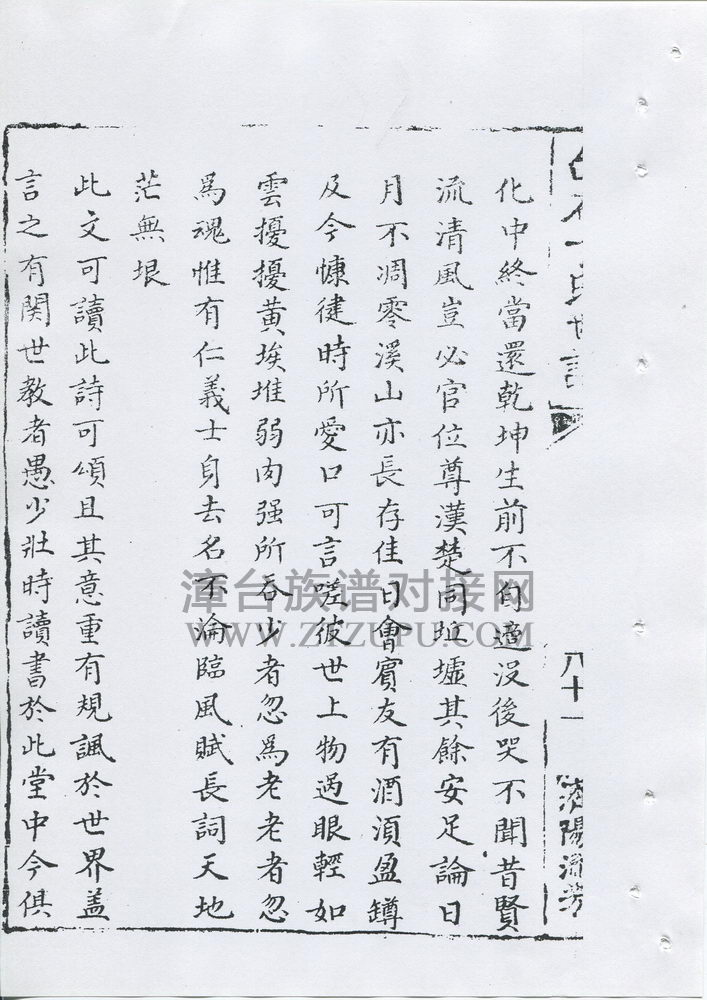 化中終當還乾坤生前不自適没後哭不聞昔賢
流清風豈必官位尊漢楚同坵墟其餘安足論日
月不凋零溪山亦長存佳日會賓友有酒須盈罇
及今慷健時所愛口可言嗟彼世上物過眼輕如
雲擾擾黄埃堆弱肉强所吞少者忽爲老老者忽
爲魂惟有仁義士身去名不淪臨風賦長詞天地
茫無垠
此文可讀此詩可頌且其意重有規諷於世界盖
言之有関世教者愚少壯時讀書於此堂中今俱
八十一
濟陽流芳
漳台族谱对接网
WWW.ZTZUPU.COM